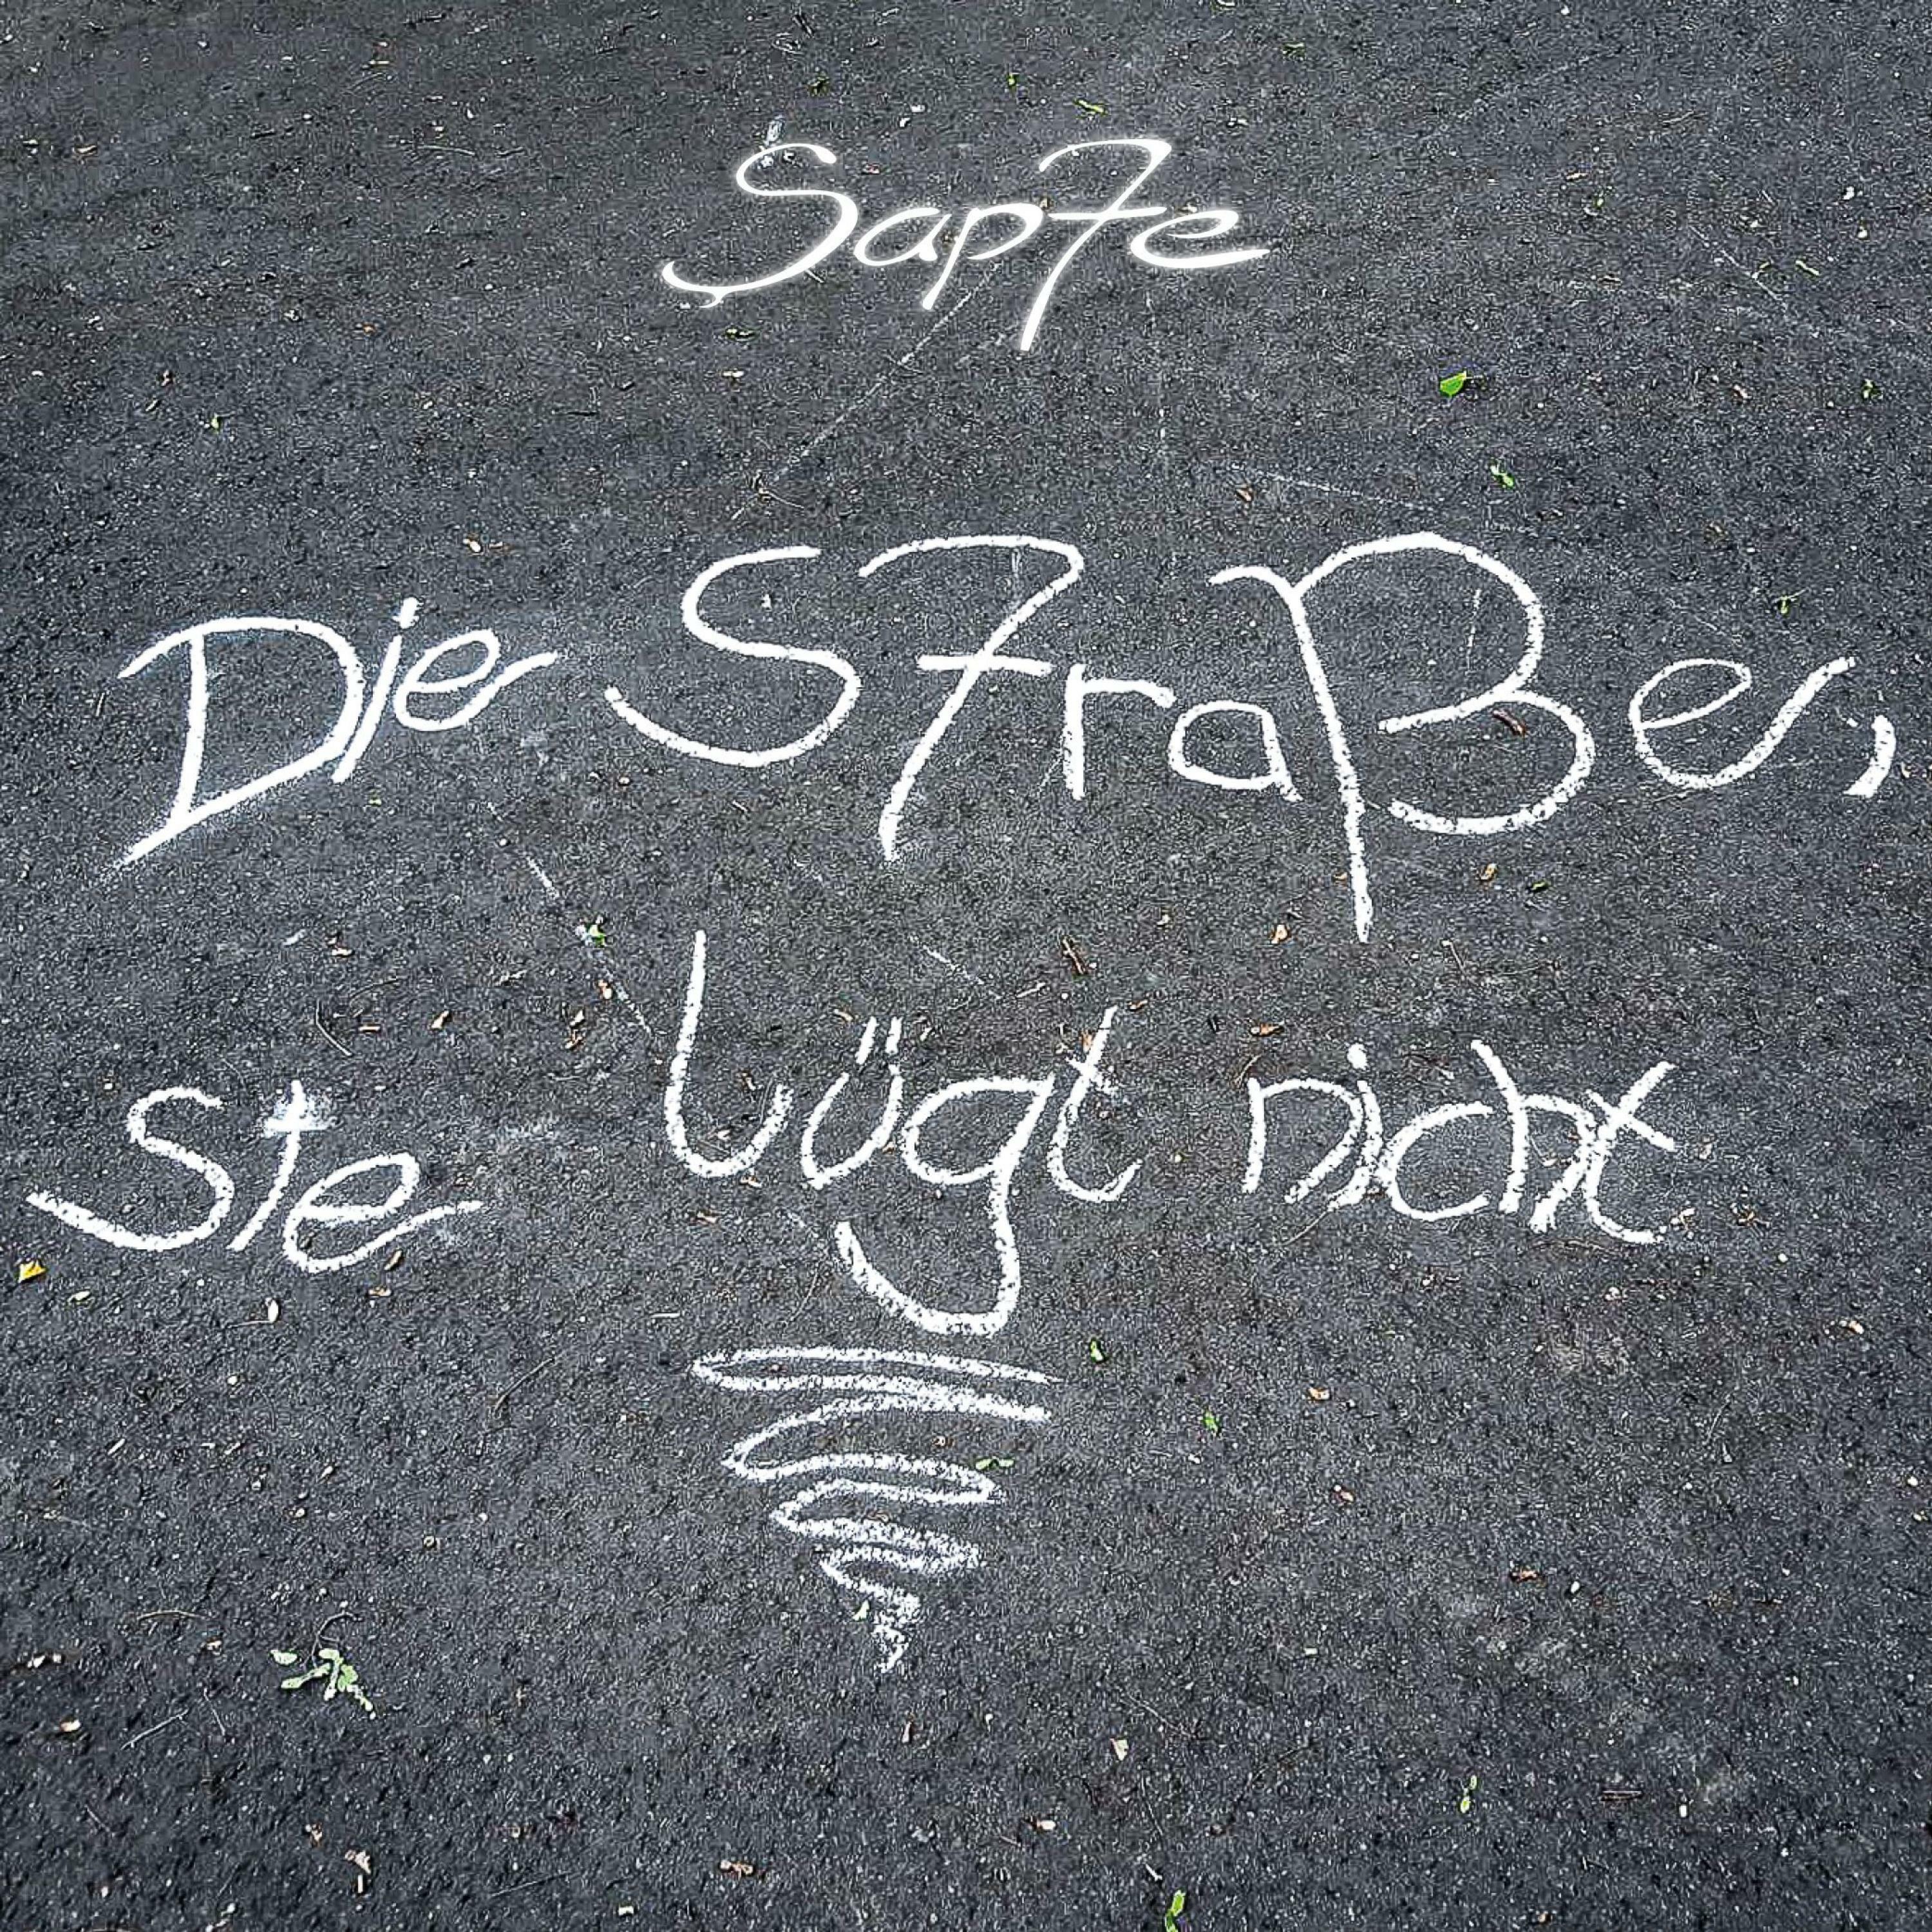 Sap7e
Die S7raße,
Sie lügt nicht